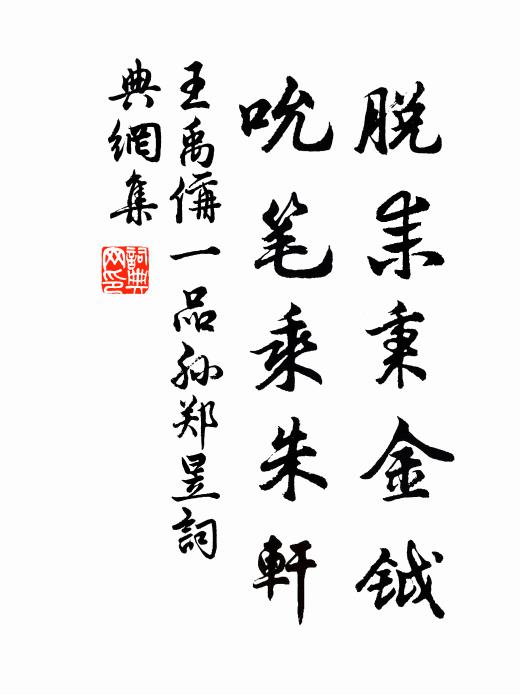 脱耒秉金钺
吮笔乘朱軒
王禹偁一品孙郑昱詞
典網集
詞典
网印